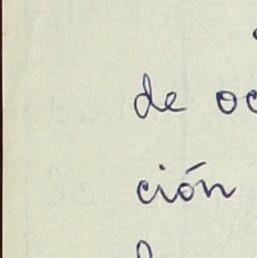 de oc
ción